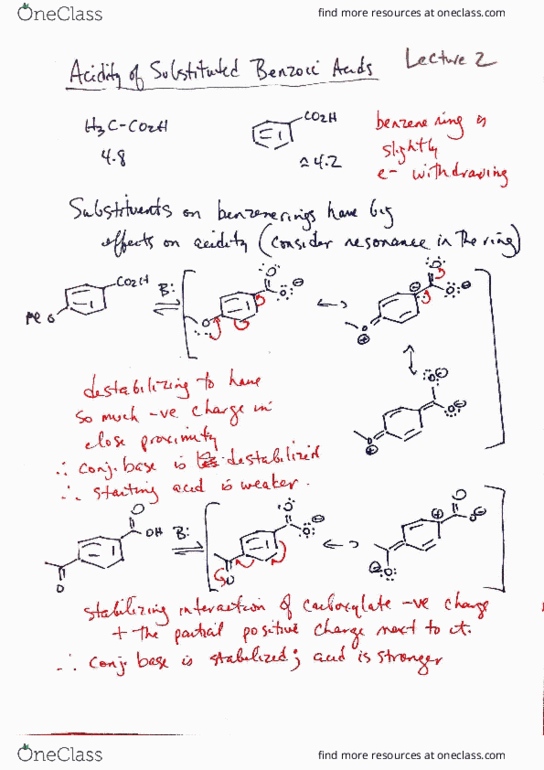 OneClass
find more resources at oneclass.com
Acidity of Substituted Benzoci Acids
Lecture 2
H3C-CO2H
4.8
CO2H
≈ 4.2
benzene ring is
slightly
e- withdrawing
Substituents on benzene rings have big
effects on acidity (consider resonance in the ring)
CO2H
MeO
B:
destabilizing to have
so much -ve charge in
close proximity
∴ conj. base is destabilized
∴ starting acid is weaker.
O
OH
B:
O
stabilizing interaction of carboxylate -ve charge
+ the partial positive charge next to it.
∴ conj. base is stabilized; acid is stronger
OneClass
find more resources at oneclass.com